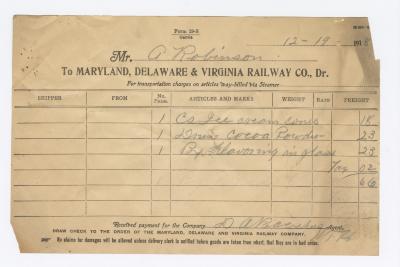 Form 29-S
12-19- 1918
Mr. A Robinson
To MARYLAND, DELAWARE & VIRGINIA RAILWAY CO., Dr.
For transportation charges on articles way-billed via Steamer
SHIPPER FROM No. Pkgs. ARTICLES AND MARKS WEIGHT RATE FREIGHT
1 Cs Ice cream cones 18
1 Cocoa Powder 23
1 Bx Flavoring in glass 23
Tax 02
66
Received payment for the Company
DRAW CHECK TO THE ORDER OF THE MARYLAND, DELAWARE AND VIRGINIA RAILWAY COMPANY.
No claims for damages will be allowed unless delivery clerk is notified before goods are taken from wharf, that they are in bad order.